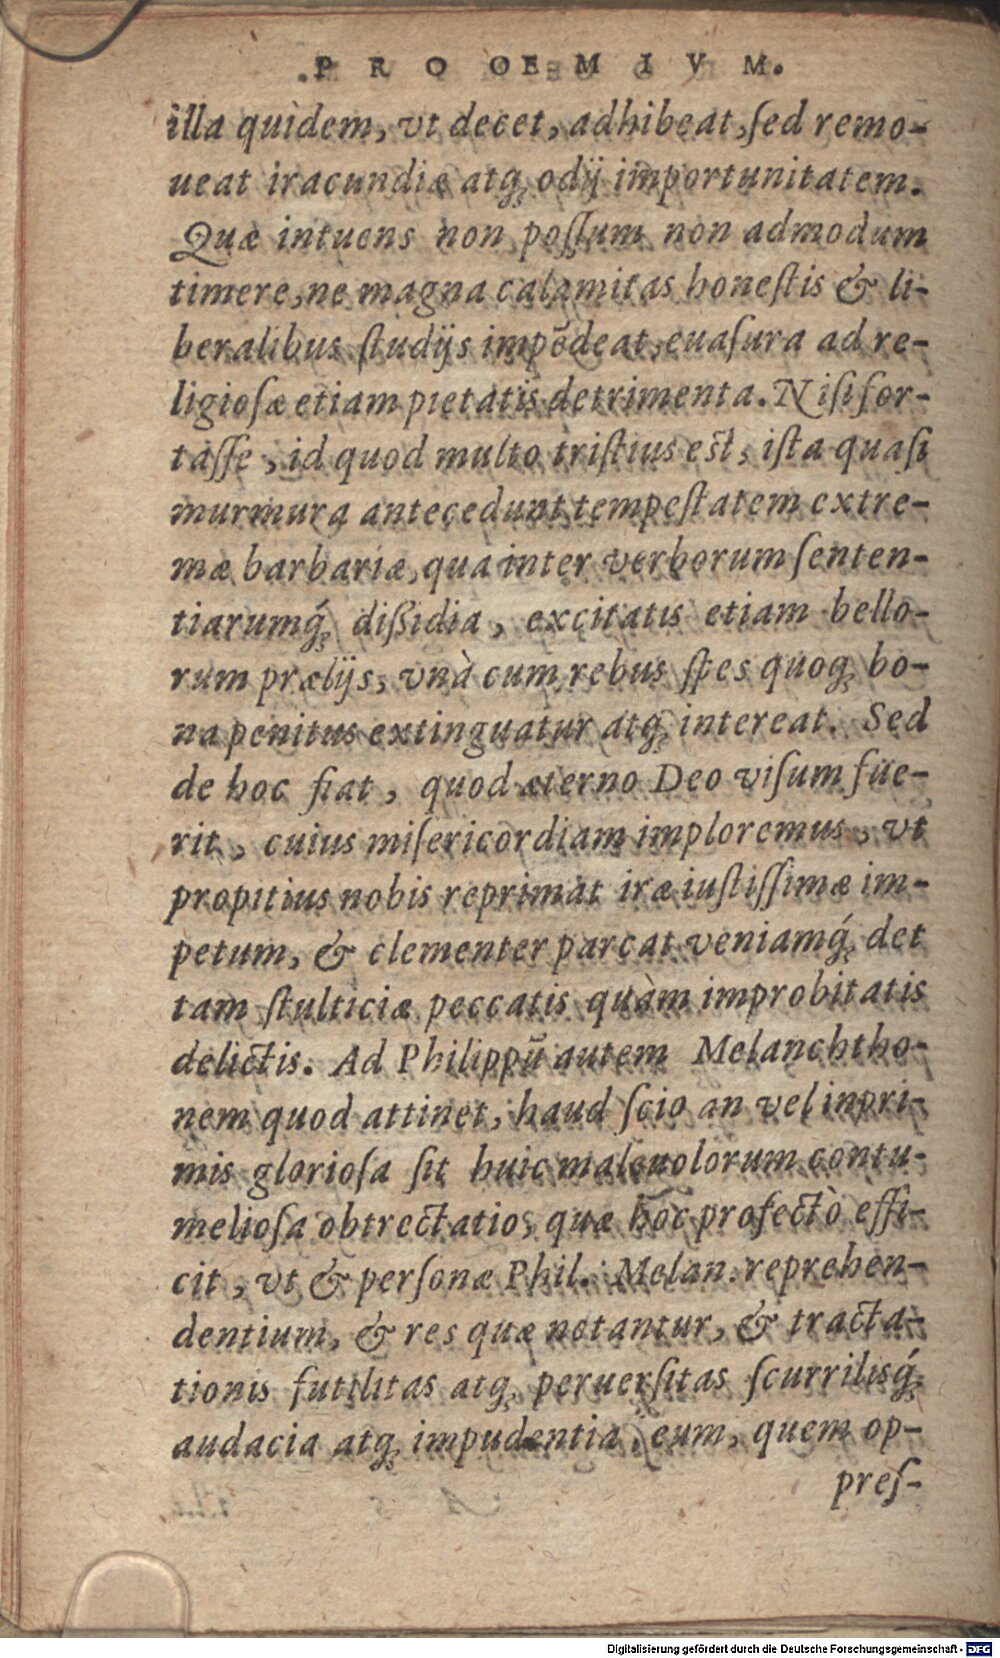 PROOEMIVM.
illa quidem, vt decet, adhibeat, ſed remo-
ueat iracundiæ atq; odij importunitatem.
Quæ intuens non poſſum non admodum
timere, ne magna calamitas honeſtis & li-
beralibus ſtudijs impēdeat, euaſura ad re-
ligioſæ etiam pietatis detrimenta. Niſi for-
taſſe, id quod multo triſtius eſt, iſta quaſi
murmura antecedunt tempeſtatem extre-
mæ barbariæ, qua inter verborum ſenten-
tiarumq́; dißidia, excitatis etiam bello-
rum prælijs, vnà cum rebus ſpes quoq; bo-
na penitus extinguatur atq; intereat. Sed
de hoc fiat, quod æterno Deo viſum fue-
rit, cuius miſericordiam imploremus, vt
propitius nobis reprimat iræ iuſtiſſimæ im-
petum, & clementer parcat veniamq́; det
tam ſtulticiæ peccatis quàm improbitatis
delictis. Ad Philippū autem Melanchtho-
nem quod attinet, haud ſcio an vel inpri-
mis glorioſa ſit huic maleuolorum contu-
melioſa obtrectatio, quæ hoc profectò effi-
cit, vt & perſonæ Phil. Melan. reprehen-
dentium, & res quæ notantur, & tracta-
tionis futilitas atq; peruerſitas ſcurrilisq́;
audacia atq; impudentia, eum, quem op-
preſ-
Digitalisierung gefördert durch die Deutsche Forschungsgemeinschaft - DFG